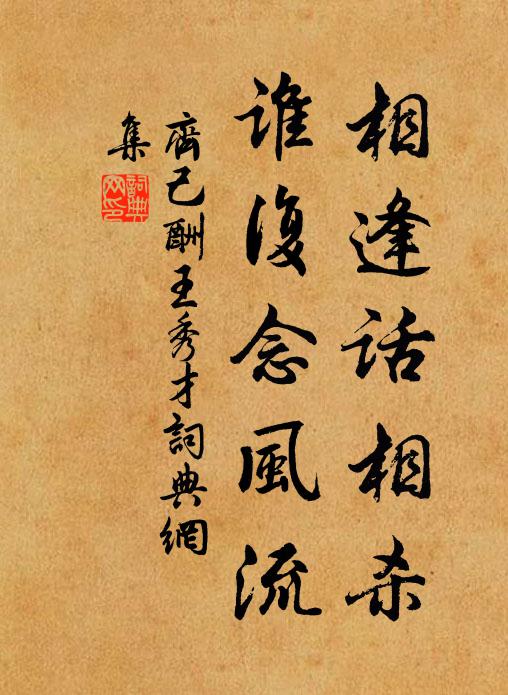 相逢话相杀
谁復念風流
齊己酬王秀才詞典網
集
詞典
网印